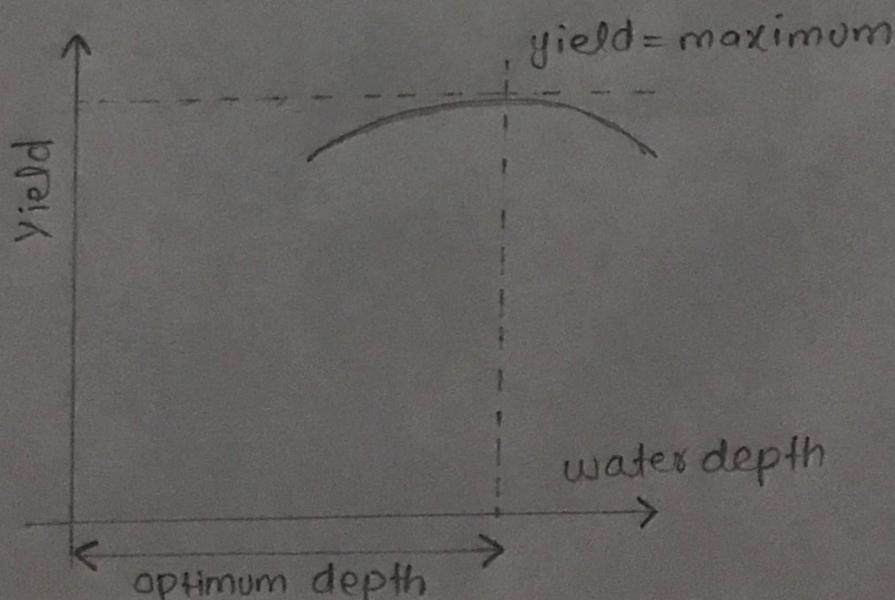 yield = maximum
Yield
water depth
optimum depth